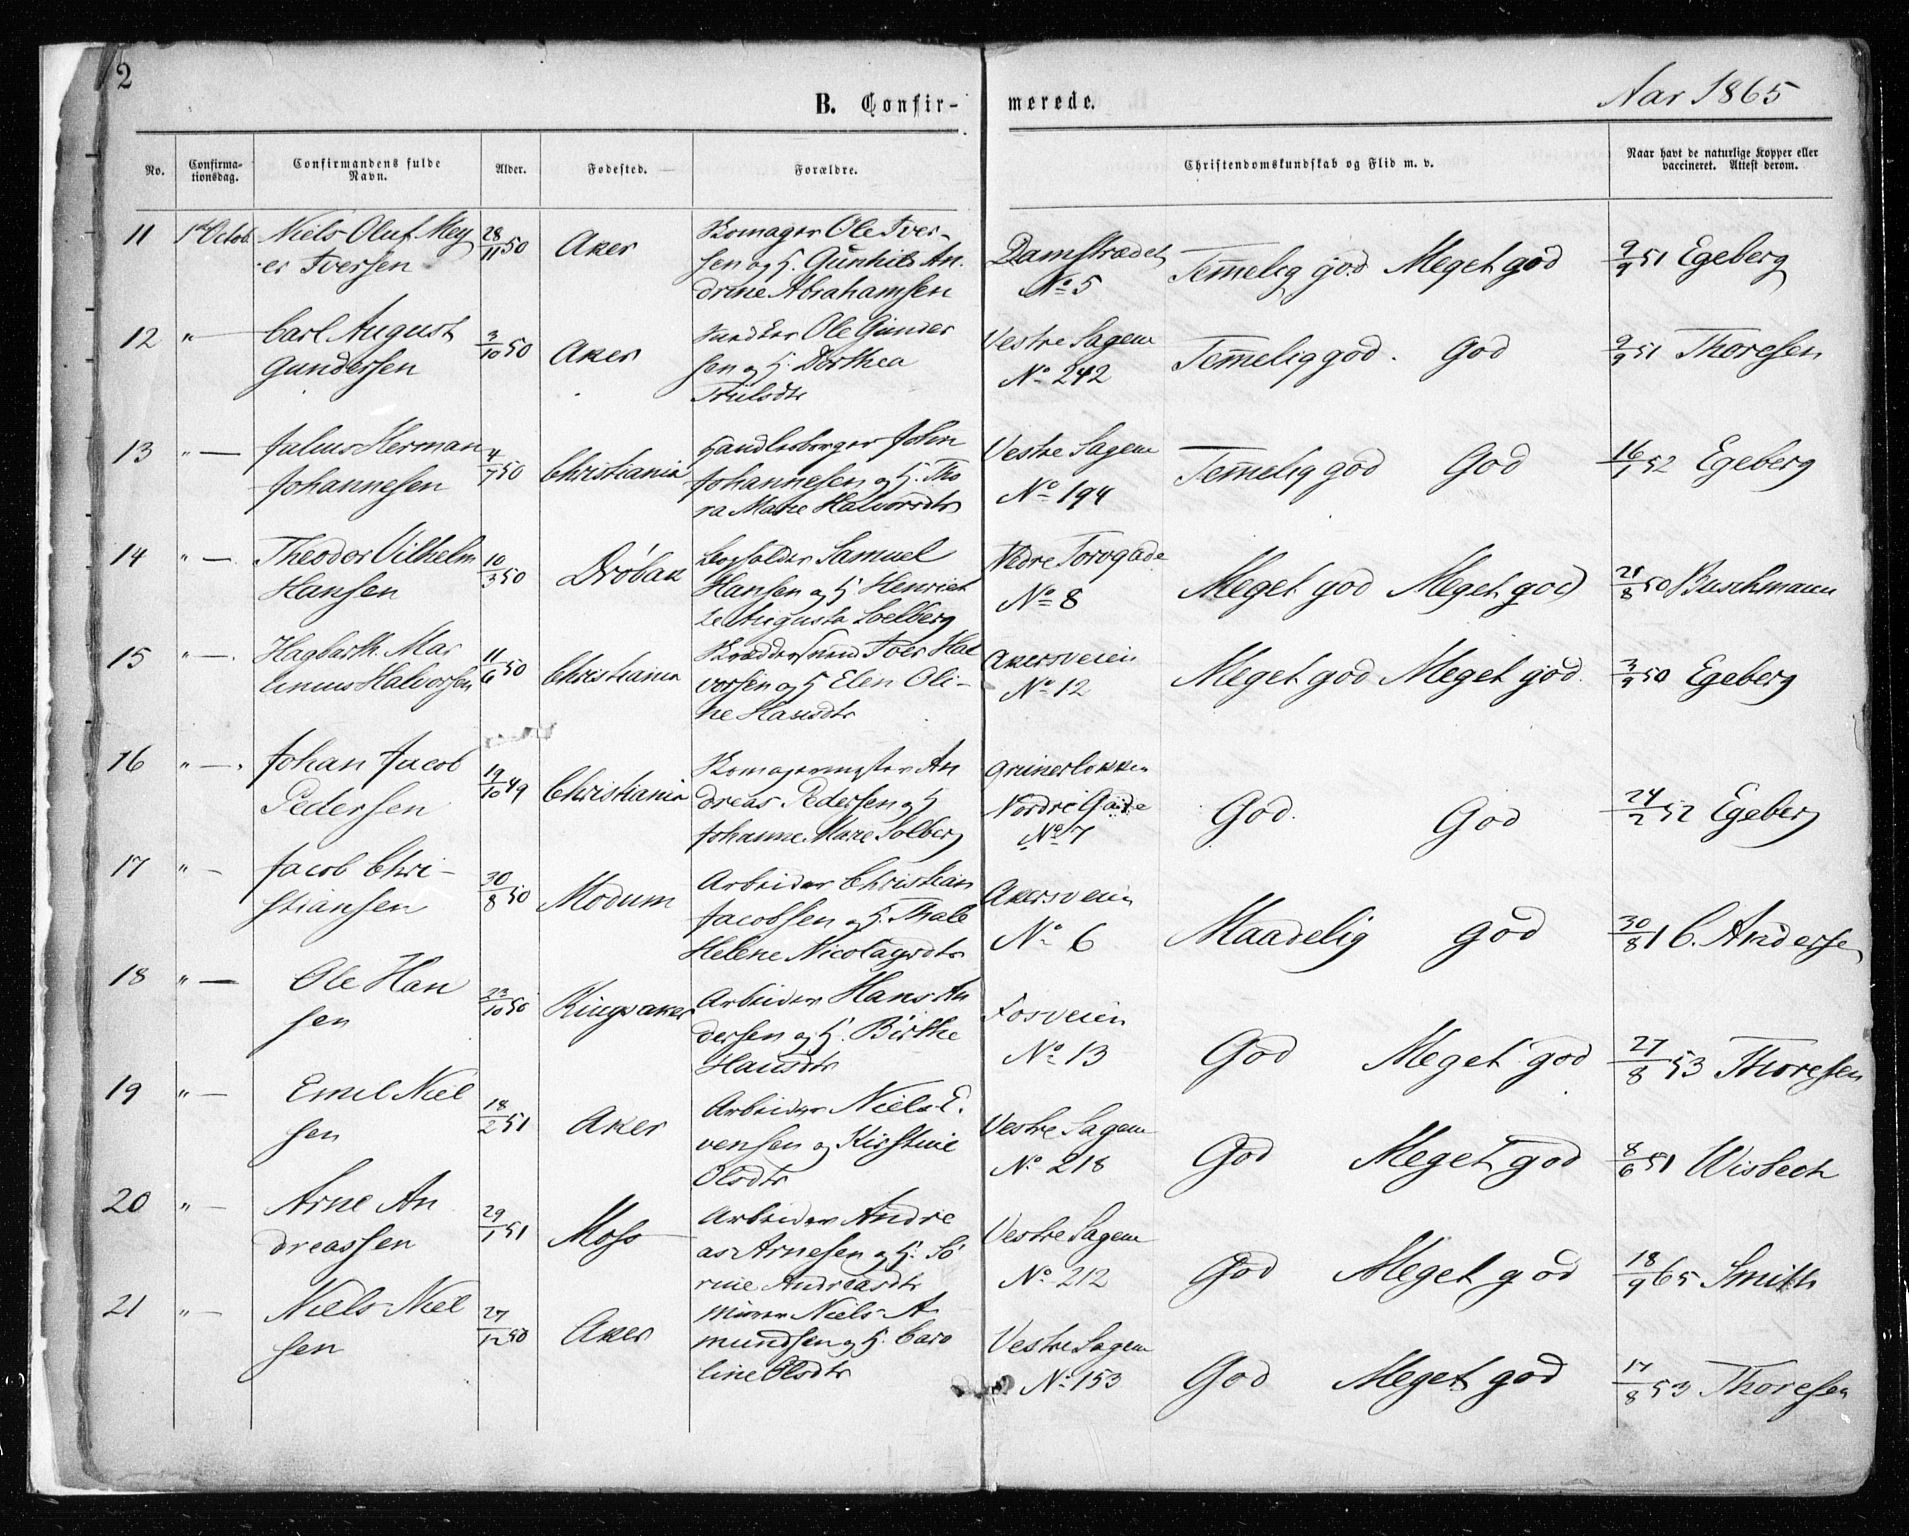 2
B. Confir-
merede.
Aar 1865
No.
Confirma-
tionsdag.
Confirmandens fulde
Navn.
Alder.
Fødested.
Forældre.
Christendomskundskab og Flid m. v.
Naar havt de naturlige Kopper eller
vaccineret. Attest derom.
11 1ste Octob. Niels Oluf Mey
er Iversen
28/11 50 Aker
Skomager Ole Iver-
sen og H. Gunhild An-
drine Abrahamsen
Damstrædet
No 5
Temmelig god Meget god 9/9 51 Egeberg
12 " — Carl August
Gundersen
3/10 50 Aker
Ole Gunder
sen og H. Dorthea
Trulsdtr
Vestre Sagene
No 242
Temmelig god. God 9/9 51 Thoresen
13 " — Julius Herman
Johannesen
4/7 50 Christiania
Handlsborger John
Johannesen og H. Tho
ra Marie Halvorsdtr
Vestre Sagene
No 194
Temmelig god God 16/1 52 Egeberg
14 " — Theodor Vilhelm
Hansen
10/3 50 Drøbak
Samuel
Hansen og H. Henriet
te Augusta Solberg
Nedre Torvgade
No 8
Meget god Meget god 21/8 50 Buschmann
15 " — Hagbarth Mar
tinius Halvorsen
11/6 50 Christiania
Skræddersvend Iver Hal
vorsen og H Elen Oli-
ne Hansdtr
Akersveien
No 12
Meget god Meget god. 3/9 50 Egeberg
16 " — Johan Jacob
Pedersen
19/10 49 Christiania
Skomagermester An
dreas Pedersen og H
Johanne Marie Solberg
Grünerløkken
Nordre Gade
No 7
God. God 24/2 52 Egeberg
17 " — Jacob Chri-
stiansen
30/8 50 Modum
Arbeider Christian
Jacobsen og H. Thale
Helene Nicolaysdtr
Akersveien
No 6
Maadelig god 30/8 1 C. Anderse
18 " — Ole Han
sen
23/10 50 Ringsaker
Arbeider Hans An
dersen og H. Birthe
Hansdtr
Fosveien
No 13
God Meget god 27/8 53 Thoresen
19 " — Emil Niel
sen
18/2 51 Aker
Arbeider Niels E.
vensen og Kirstine
Olsdtr
Vestre Sagene
No 218
God Meget god 8/6 51 Wisbech
20 " — Arne An
dreassen
29/1 51 Moss
Arbeider Andre
as Arnesen og H. Sø
rine Andreasdtr
Vestre Sagene
No 212
God Meget god 18/9 65 Smith
21 " — Niels Niel
sen
27/12 50 Aker
Murer Niels A
mundsen og H. Caro
line Olsdtr
Vestre Sagene
No 153
God Meget god 17/8 53 Thoresen